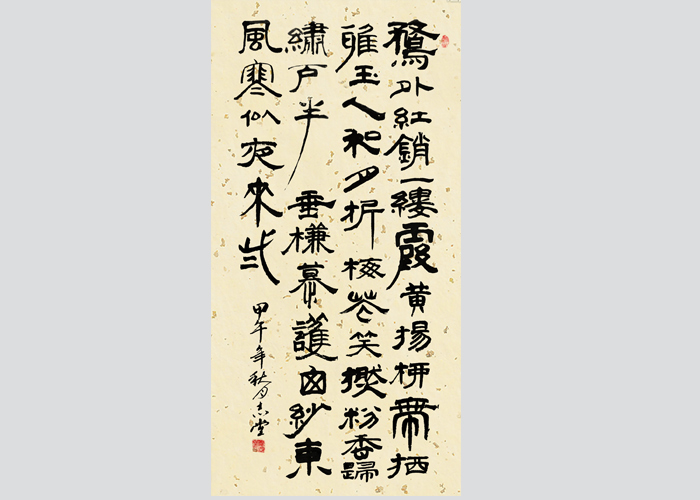 鶩外紅銷一縷霞黃揚柳帶栖
雅玉人和月折梅花笑撚粉香歸
繡戶半垂槏幕護囪紗東
風寒似夜來些
甲午年秋月志堂